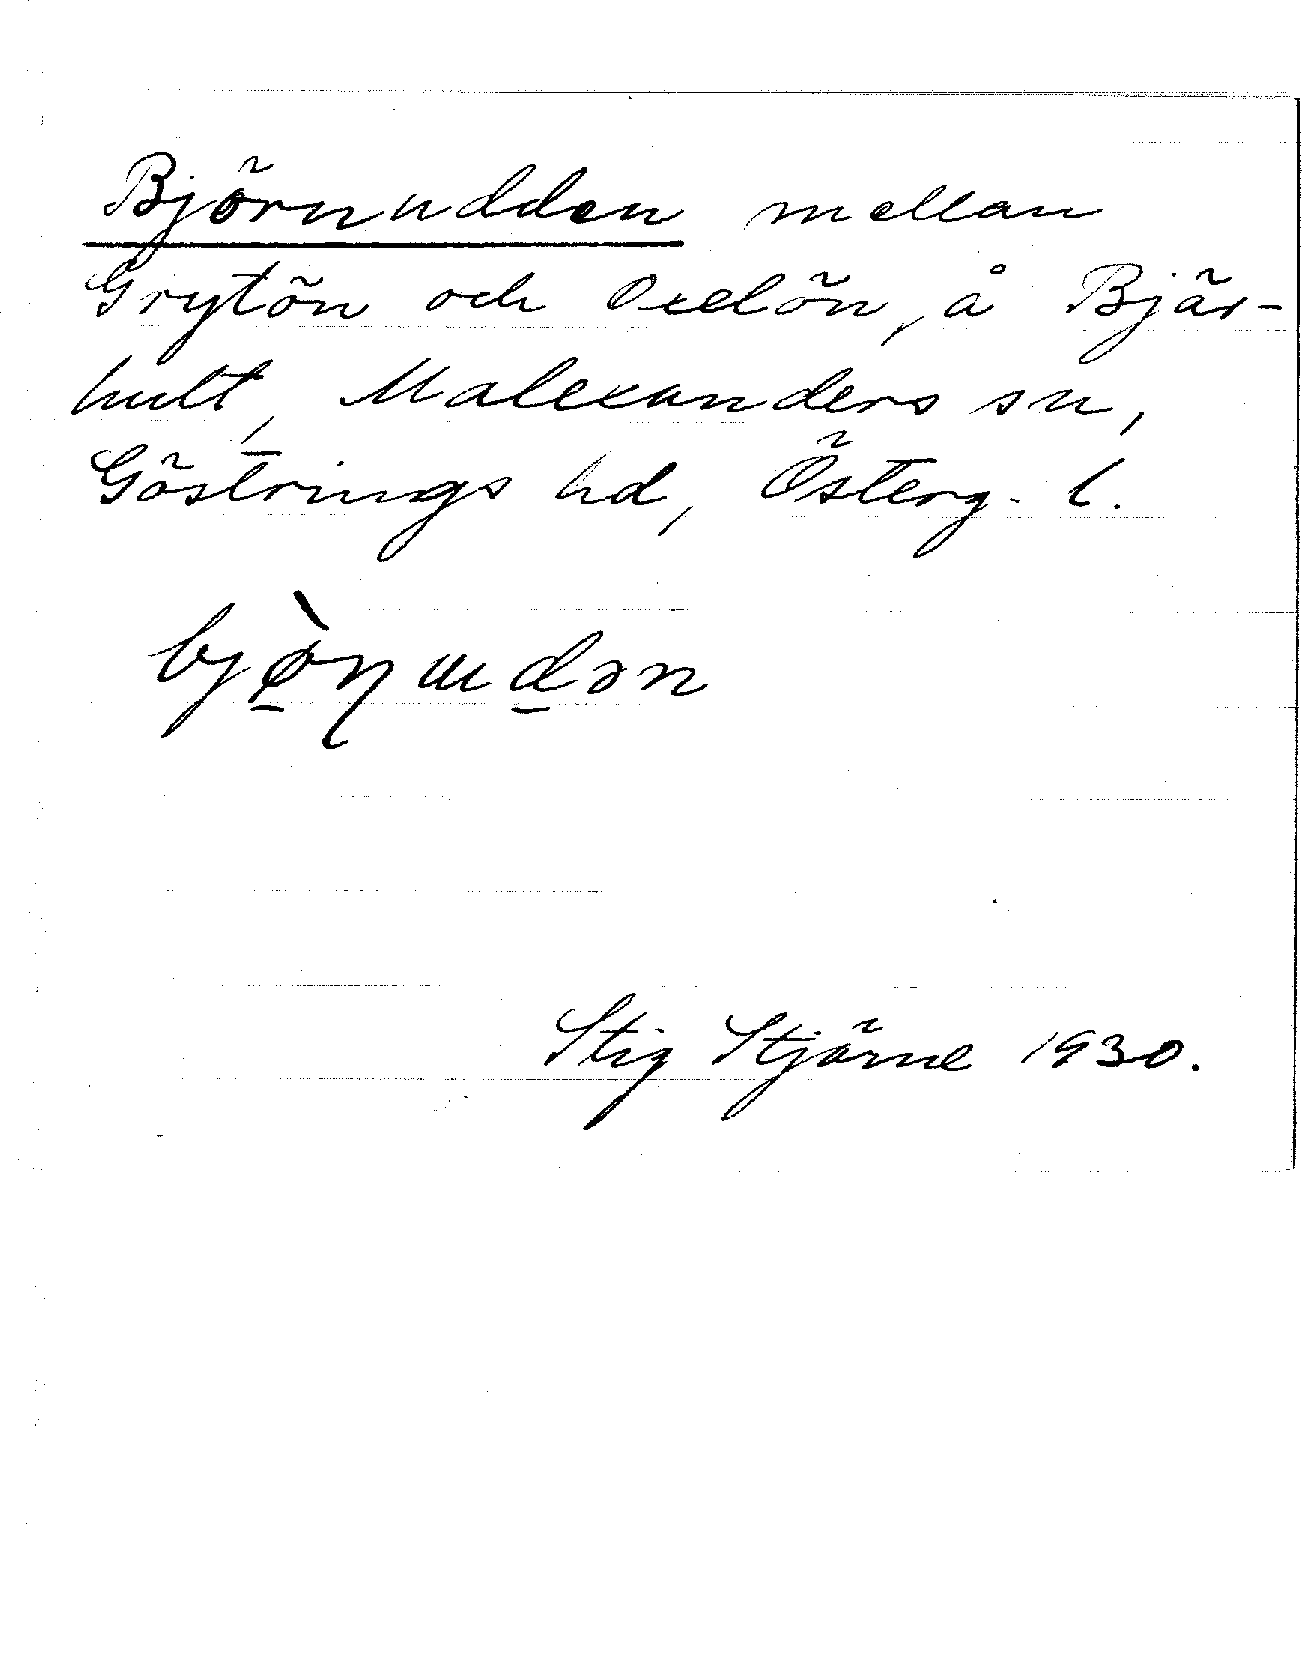 Björnudden mellan
Grytön och Oxelön, å Bjär-
hult, Malexanders sn,
Göstrings hd, Österg. l.
bjö̀ɳɯdən
Stig Stjärne 1930.